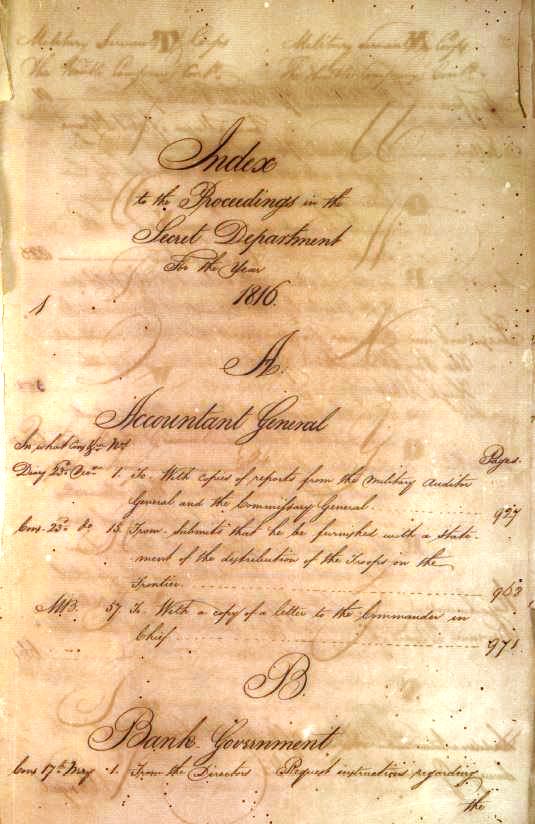 Index
to the Proceedings in the
Secret Department
For the Year
1816.
A.
Accountant General
In what Cons &ca No.
Pages.
Diary 28th Decr 1. To. With copies of reports from the Military Auditor
General and the Commissary General. 927
Cons. 28th Do 15. From. Submits that he be furnished with a state-
ment of the distribution of the Troops in the
Frontier. 963
57. To. With a copy of a letter to the Commander in
Chief 971.
B.
Bank. Government
Cons 17th May 1. From the Directors Request instructions regarding
the